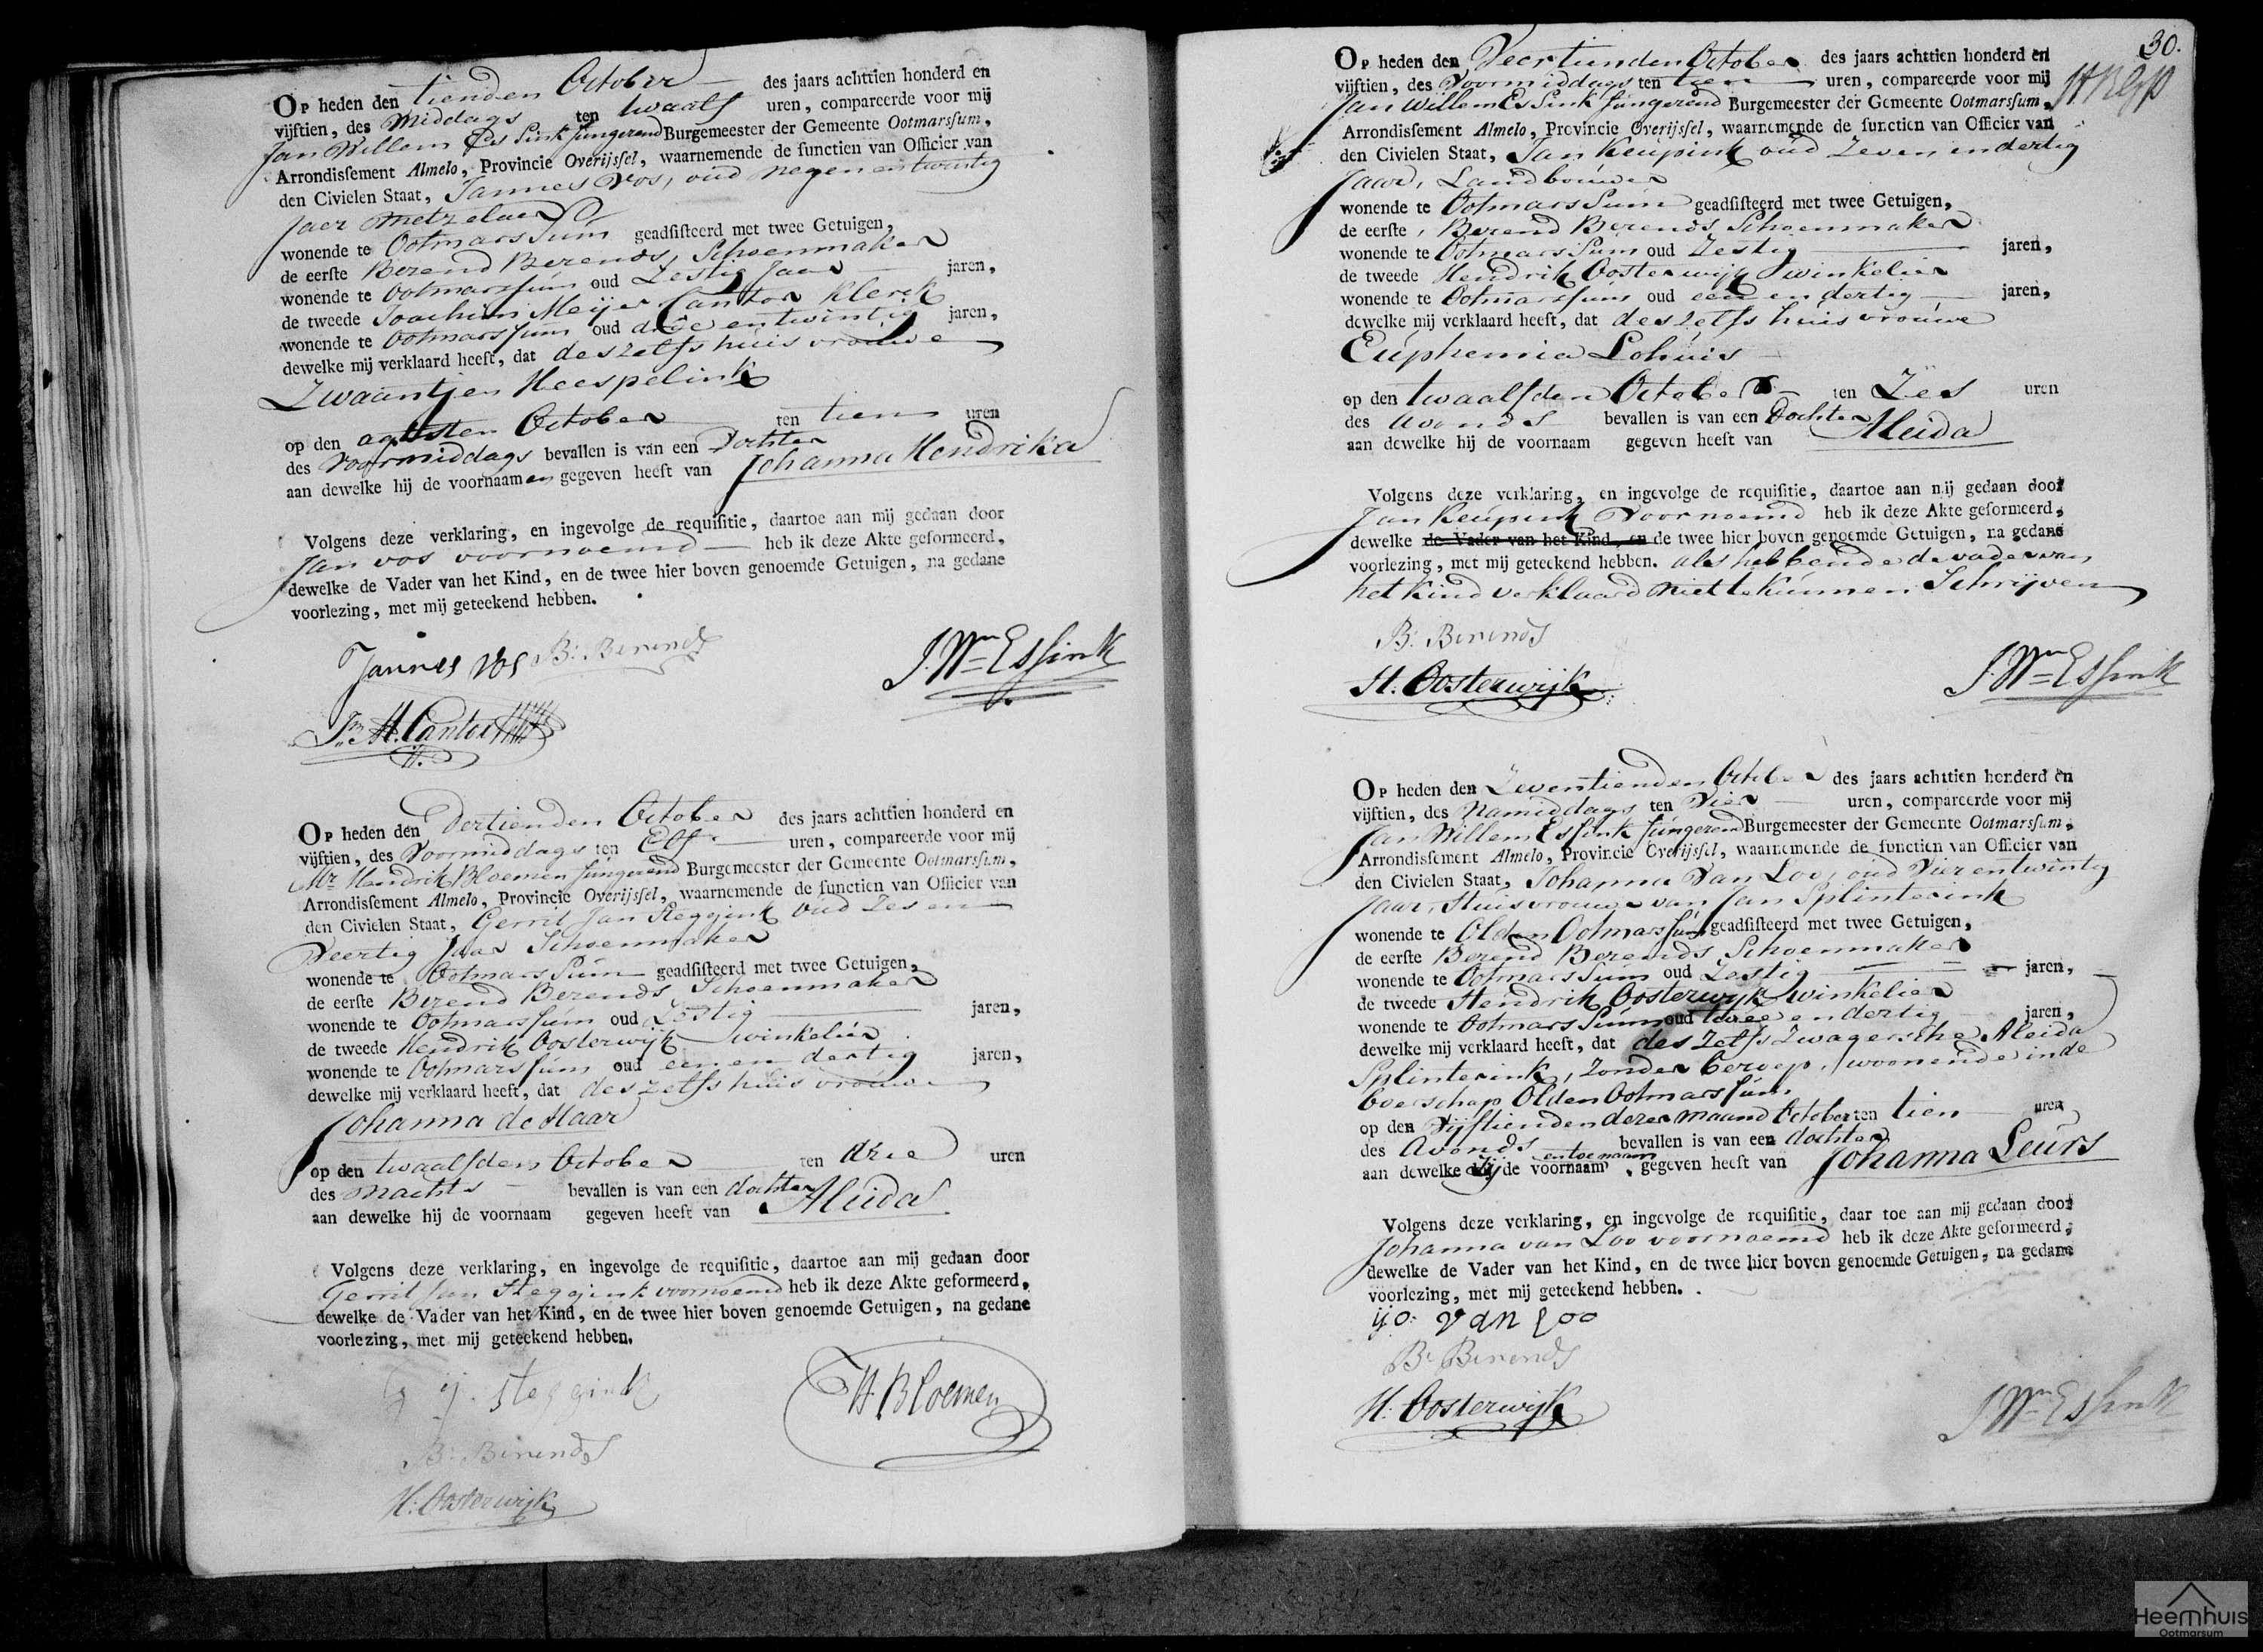 Op heden den tienden October des jaars achttien honderd en
vijftien, des Middags ten twaalf uren, compareerde voor mij
Jan Willem Essink fungerend Burgemeester der Gemeente Ootmarssum,
Arrondissement Almelo, Provincie Overijssel, waarnemende de functien van Officier van
den Civielen Staat, Jannes Vos, oud negen en twintig
Jaer Metzelaer
wonende te Ootmarssum geadsisteerd met twee Getuigen,
de eerste Berend Berends, Schoenmaker
wonende te Ootmarssum oud Zestig Jaer jaren,
de tweede Joachim Meijer Cantor Klerck
wonende te Ootmarssum oud drie en twintig jaren,
dewelke mij verklaard heeft, dat deszelfs huisvrouwe
Zwaantjen Heespelink
op den agtsten October ten tien uren
des voormiddags bevallen is van een Dochter
aan dewelke hij de voornaamen gegeven heeft van Johanna Hendrika
Volgens deze verklaring, en ingevolge de requisitie, daartoe aan mij gedaan door
Jan Vos voornoemd heb ik deze Akte geformeerd,
dewelke de Vader van het Kind, en de twee hier boven genoemde Getuigen, na gedane
voorlezing, met mij geteekend hebben.
Jannes Vos B: Berends
J. Wm Essink
Jm M. Cantor
Op heden den Dertienden October des jaars achttien honderd en
vijftien, des Voormiddags ten Elf uren, compareerde voor mij
Mr Hendrik Bloemen fungerend Burgemeester der Gemeente Ootmarssum,
Arrondissement Almelo, Provincie Overijssel, waarnemende de functien van Officier van
den Civielen Staat, Gerrit Jan Steggink oud Zes en
Veertig Jaar Schoenmaker
wonende te Ootmarssum geadsisteerd met twee Getuigen,
de eerste Berend Berends Schoenmaker
wonende te Ootmarssum oud Zestig jaren,
de tweede Hendrik Oosterwijk winkelier
wonende te Ootmarssum oud een en dertig jaren,
dewelke mij verklaard heeft, dat deszelfs huisvrouwe
Johanna de Haar
op den twaalfden October ten drie uren
des nachts bevallen is van een dochter
aan dewelke hij de voornaam gegeven heeft van Aleida
Volgens deze verklaring, en ingevolge de requisitie, daartoe aan mij gedaan door
Gerrit Jan Steggink voornoemd heb ik deze Akte geformeerd,
dewelke de Vader van het Kind, en de twee hier boven genoemde Getuigen, na gedane
voorlezing, met mij geteekend hebben.
g j. steggink
H Bloemen
B: Berends
H: Oosterwijk
30.
Op heden den Veertienden October des jaars achttien honderd en
vijftien, des Voormiddags ten tien uren, compareerde voor mij
Jan Willem Essink fungerend Burgemeester der Gemeente Ootmarssum,
Arrondissement Almelo, Provincie Overijssel, waarnemende de functien van Officier van
den Civielen Staat, Jan Keupink oud Zeven en dertig
Jaar, Landbouwer
wonende te Ootmarssum geadsisteerd met twee Getuigen,
de eerste, Berend Berends Schoenmaker
wonende te Ootmarssum oud Zestig jaren,
de tweede Hendrik Oosterwijk winkelier
wonende te Ootmarssum oud een en dertig jaren,
dewelke mij verklaard heeft, dat deszelfs huisvrouwe
Euphemia Lohuis
op den twaalfden October ten Zes uren
des avonds bevallen is van een Dochter
aan dewelke hij de voornaam gegeven heeft van Aleida
Volgens deze verklaring, en ingevolge de requisitie, daartoe aan mij gedaan door
Jan Keupink voornoemd heb ik deze Akte geformeerd,
dewelke de Vader van het Kind, en de twee hier boven genoemde Getuigen, na gedane
voorlezing, met mij geteekend hebben. als hebbende de vader van
het Kind verklaard niet te kunnen Schrijven
B: Berends
H. Oosterwijk
J. Wm Essink
Op heden den Zeventienden October des jaars achttien honderd en
vijftien, des Namiddags ten Vier uren, compareerde voor mij
Jan Willem Essink fungerend Burgemeester der Gemeente Ootmarssum,
Arrondissement Almelo, Provincie Overijssel, waarnemende de functien van Officier van
den Civielen Staat, Johanna Van Loo, oud Vier en twintig
Jaar, Huisvrouwe van Jan Splinterink
wonende te Olden Ootmarssum geadsisteerd met twee Getuigen,
de eerste Berend Berends Schoenmaker
wonende te Ootmarssum oud Zestig jaren,
de tweede Hendrik Oosterwijk winkelier
wonende te Ootmarssum oud en dertig jaren,
dewelke mij verklaard heeft, dat deszelfs Zwagersche Aleida
Splinterink, Zonder beroep, woonende in de
boerschap Olden Ootmarssum
op den Vijftienden dezer maand October ten tien uren
des Avonds bevallen is van een dochter
aan dewelke Zij de voornaam en toenaam gegeven heeft van Johanna Leurs
Volgens deze verklaring, en ingevolge de requisitie, daar toe aan mij gedaan door
Johanna van Loo voornoemd heb ik deze Akte geformeerd,
dewelke de Vader van het Kind, en de twee hier boven genoemde Getuigen, na gedane
voorlezing, met mij geteekend hebben.
van Loo
B: Berends
H: Oosterwijk
J Wm Essink
Heemhuis
Ootmarsum